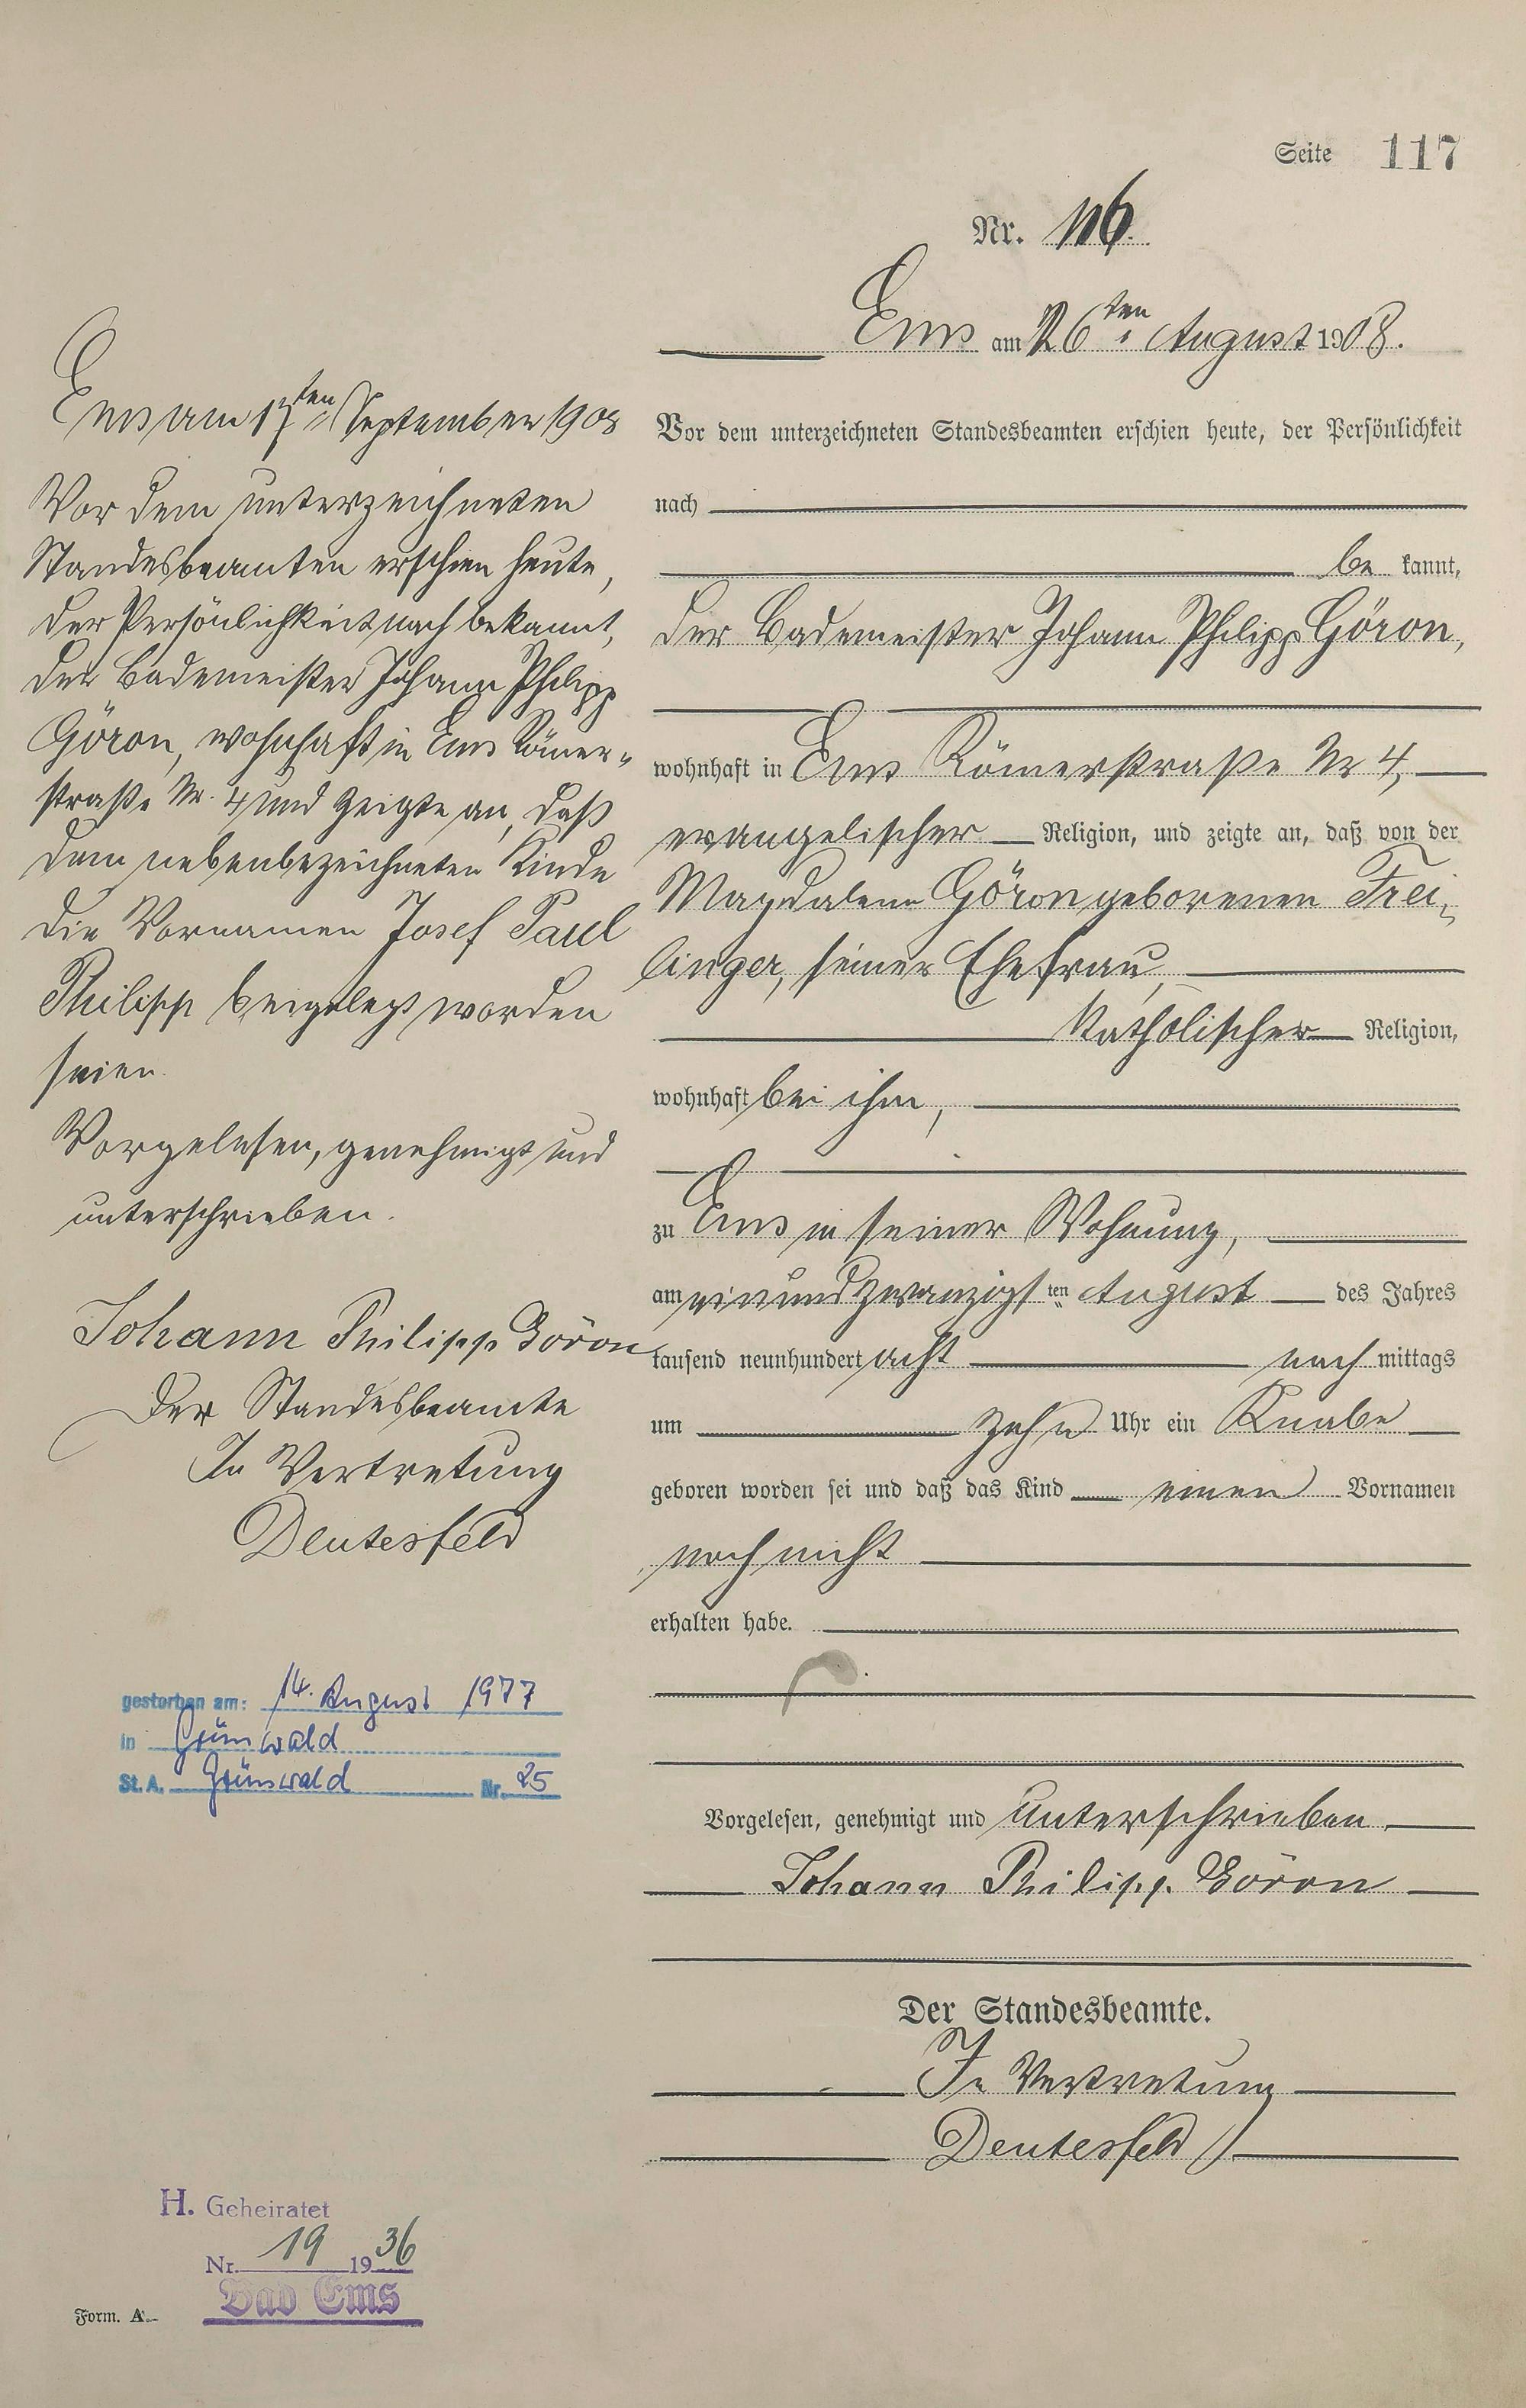 Seite 117
Nr. 116.
Ems am 26ten August 1908.
Vor dem unterzeichneten Standesbeamten erschien heute, der Persönlichkeit
nach
be kannt,
der Bademeister Johann Philipp Göron,
wohnhaft in Ems Römerstraße Nr 4,
evangelischer Religion, und zeigte an, daß von der
Magdalena Göron geborenen Frei-
linger, seiner Ehefrau,
katholischer Religion,
wohnhaft bei ihm,
zu Ems in seiner Wohnung,
am einundzwanzigsten August des Jahres
tausend neunhundert acht nach mittags
um zehn Uhr ein Knabe
geboren worden sei und daß das Kind einen Vornamen
noch nicht
erhalten habe.
Vorgelesen, genehmigt und unterschrieben.
Johann Philipp Göron
Der Standesbeamte.
In Vertretung
Deutesfeld
Ems am 17ten September 1908
Vor dem unterzeichneten
Standesbeamten erschien heute,
der Persönlichkeit nach bekannt,
der Bademeister Johann Philipp
Göron, wohnhaft in Ems Römer-
straße Nr. 4 und zeigte an, daß
dem nebenbezeichneten Kinde
die Vornamen Josef Paul
Philipp beigelegt worden
seien.
Vorgelesen, genehmigt und
unterschrieben.
Johann Philipp Göron
Der Standesbeamte
In Vertretung
Deutesfeld
gestorben am: 14. August 1977
in Grünwald
St. A. Grünwald Nr. 25
H. Geheiratet
Nr. 19 1936
Bad Ems
Form. A.